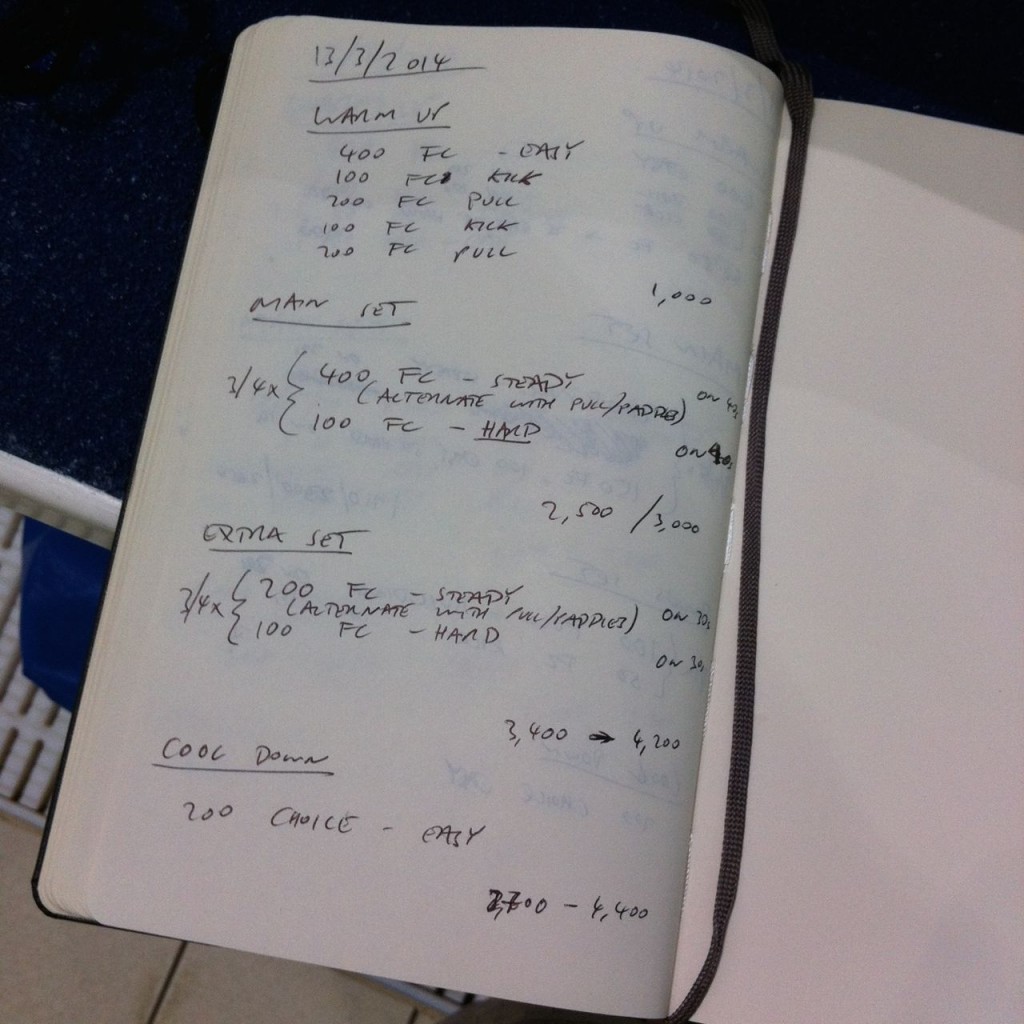 13/3/2014
WARM UP
400 FC - EASY
100 FC KICK
200 FC PULL
100 FC KICK
200 FC PULL
1,000
MAIN SET
3/4x { 400 FC - STEADY
(ALTERNATE WITH PULL/PADDLES) ON
100 FC - HARD
ON
2,500 / 3,000
EXTRA SET
3/4x { 200 FC - STEADY
(ALTERNATE WITH PULL/PADDLES) ON 30s
100 FC - HARD
ON 30s
3,400 → 4,200
COOL DOWN
200 CHOICE - EASY
- 4,400